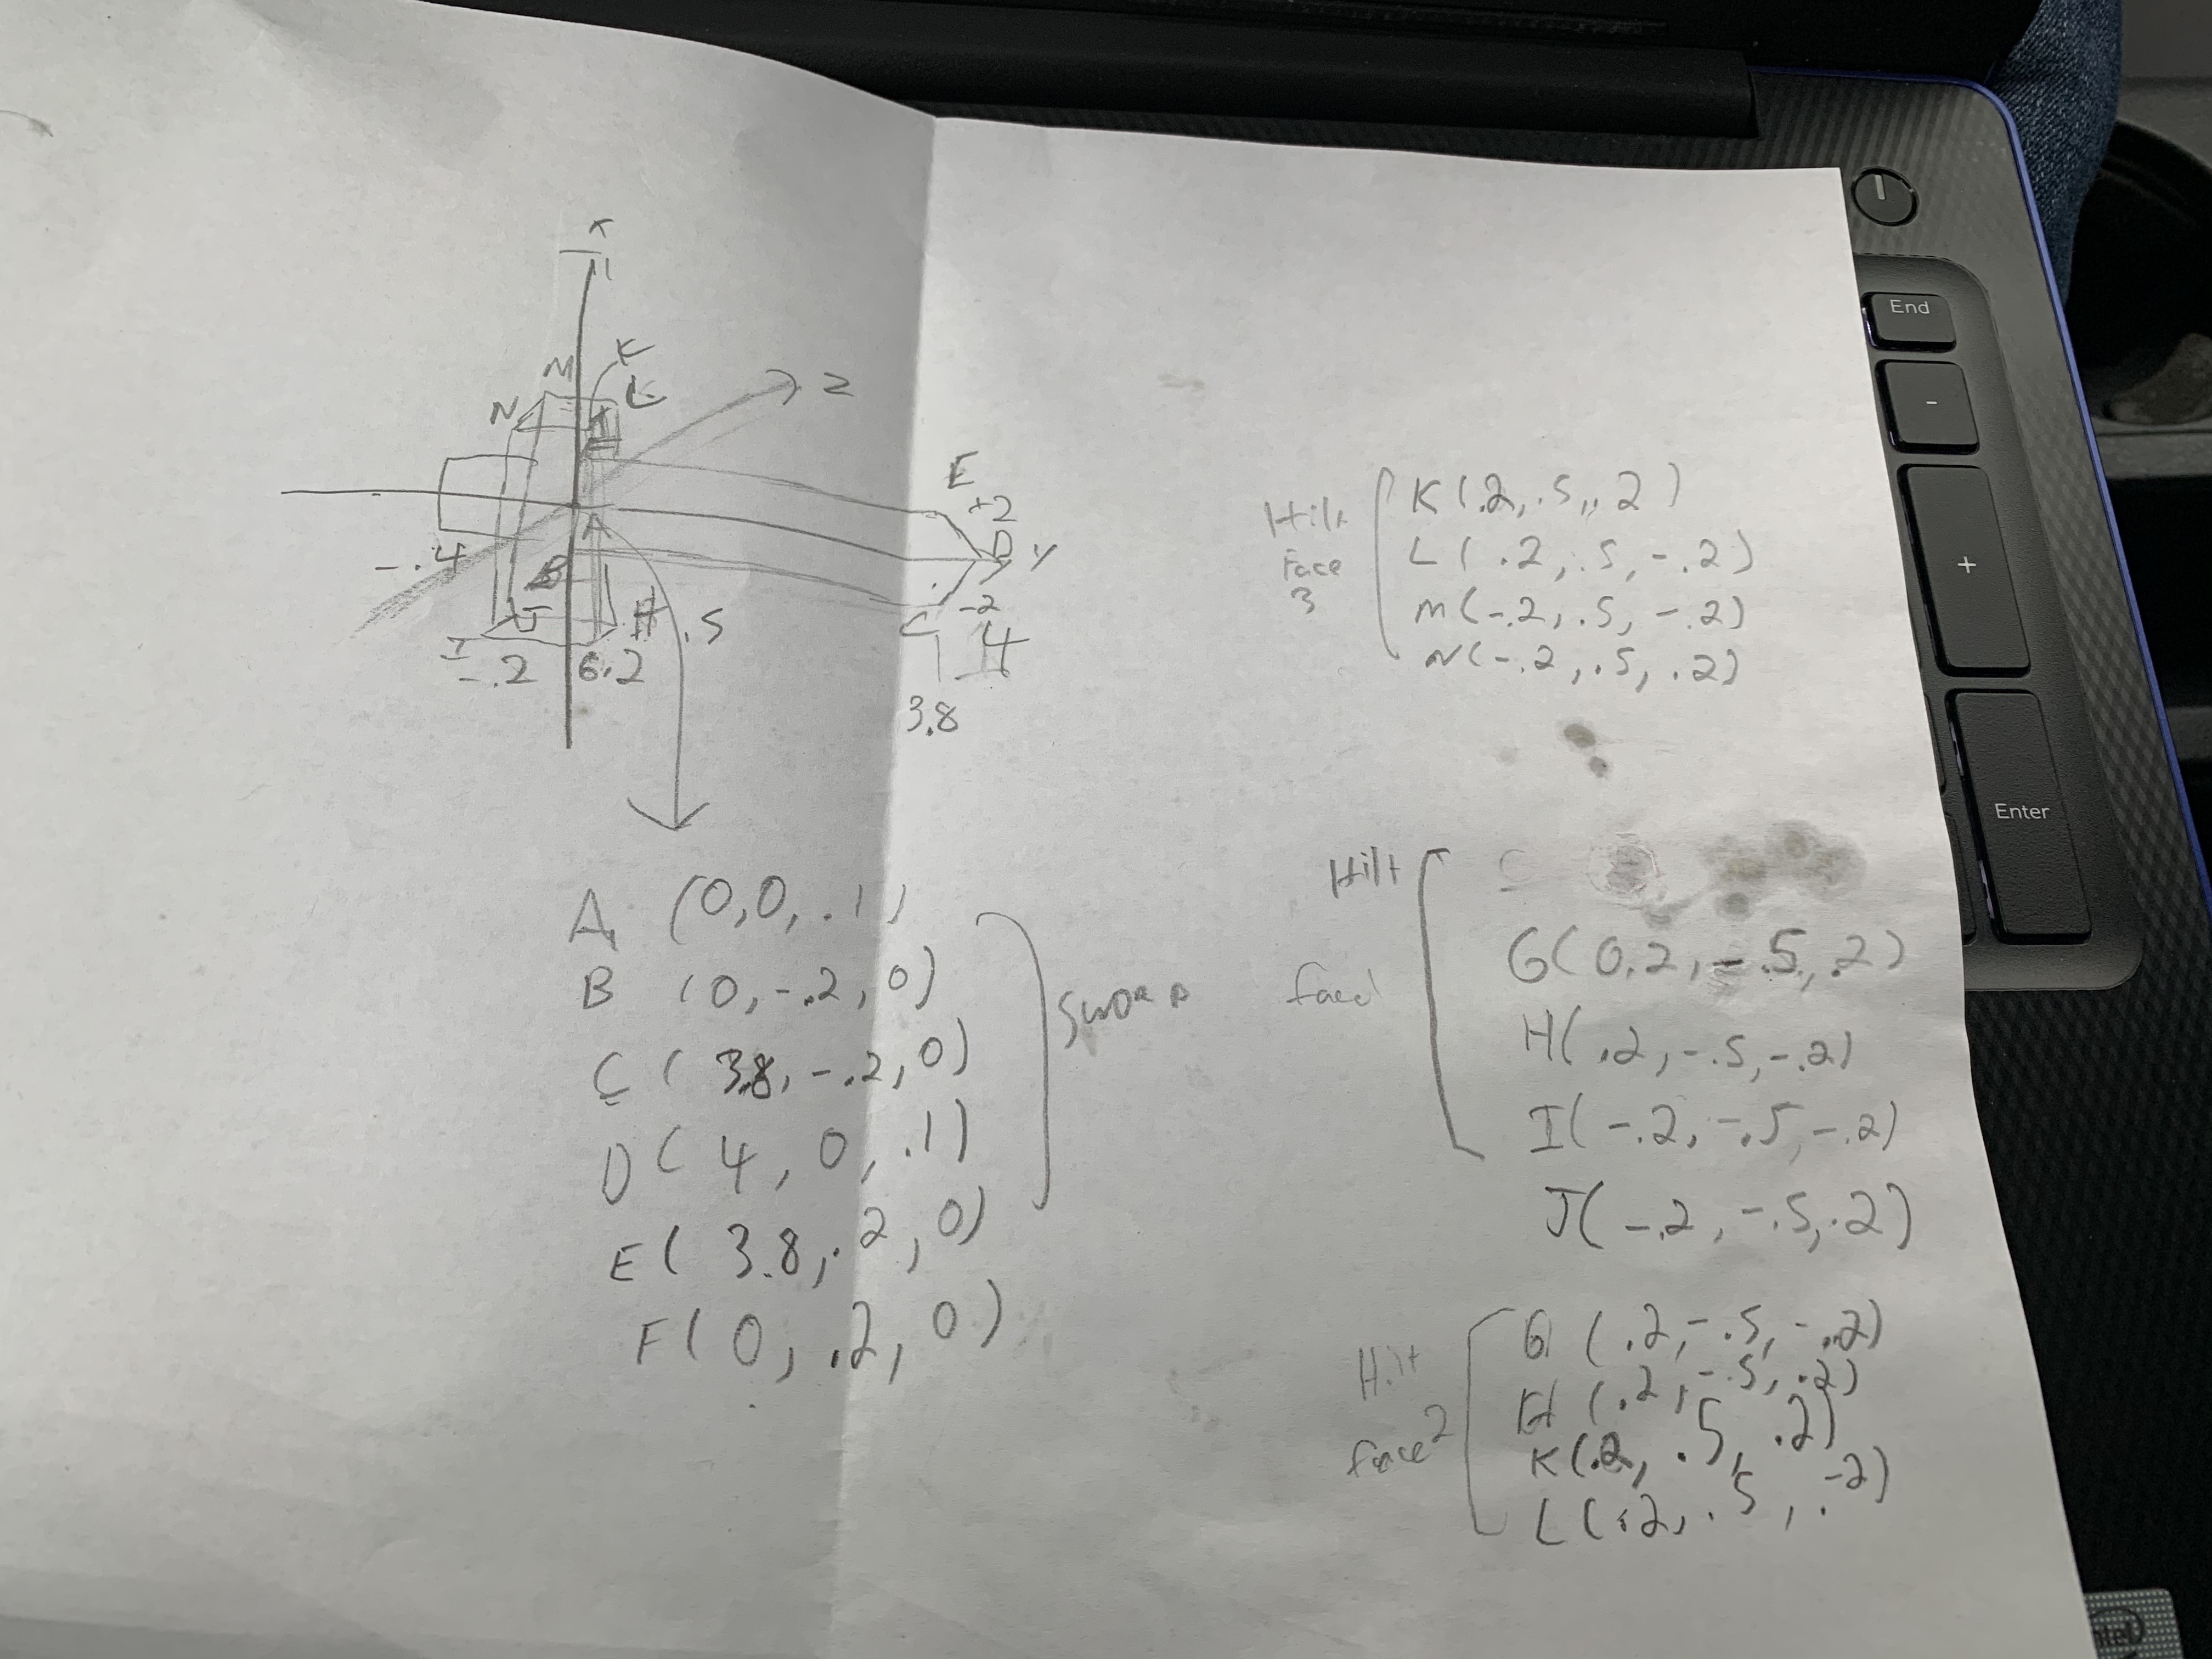 X
M
K
L
N
Z
E
+2
D
y
-.4
A
B
J
H
.5
C
-2
I
-.2
G.2
4
3.8
A (0,0,.1)
B (0,-.2,0)
C ( 3.8,-.2,0)
D ( 4, 0, .1)
E ( 3.8,.2,0)
F ( 0, .2, 0)
SWORD
Hilt
Face
3
K (.2, .5, .2)
L ( .2, .5, -.2)
M (-.2, .5, -.2)
N (-.2, .5, .2)
Hilt
face
G( 0.2, -.5, .2)
H( .2, -.5, -.2)
I( -.2, -.5, -.2)
J( -.2, -.5, .2)
Hilt
face 2
G ( .2, -.5, -.2)
H ( .2, -.5, .2)
K (.2, .5, .2)
L (.2, .5, .-2)
End
-
+
Enter